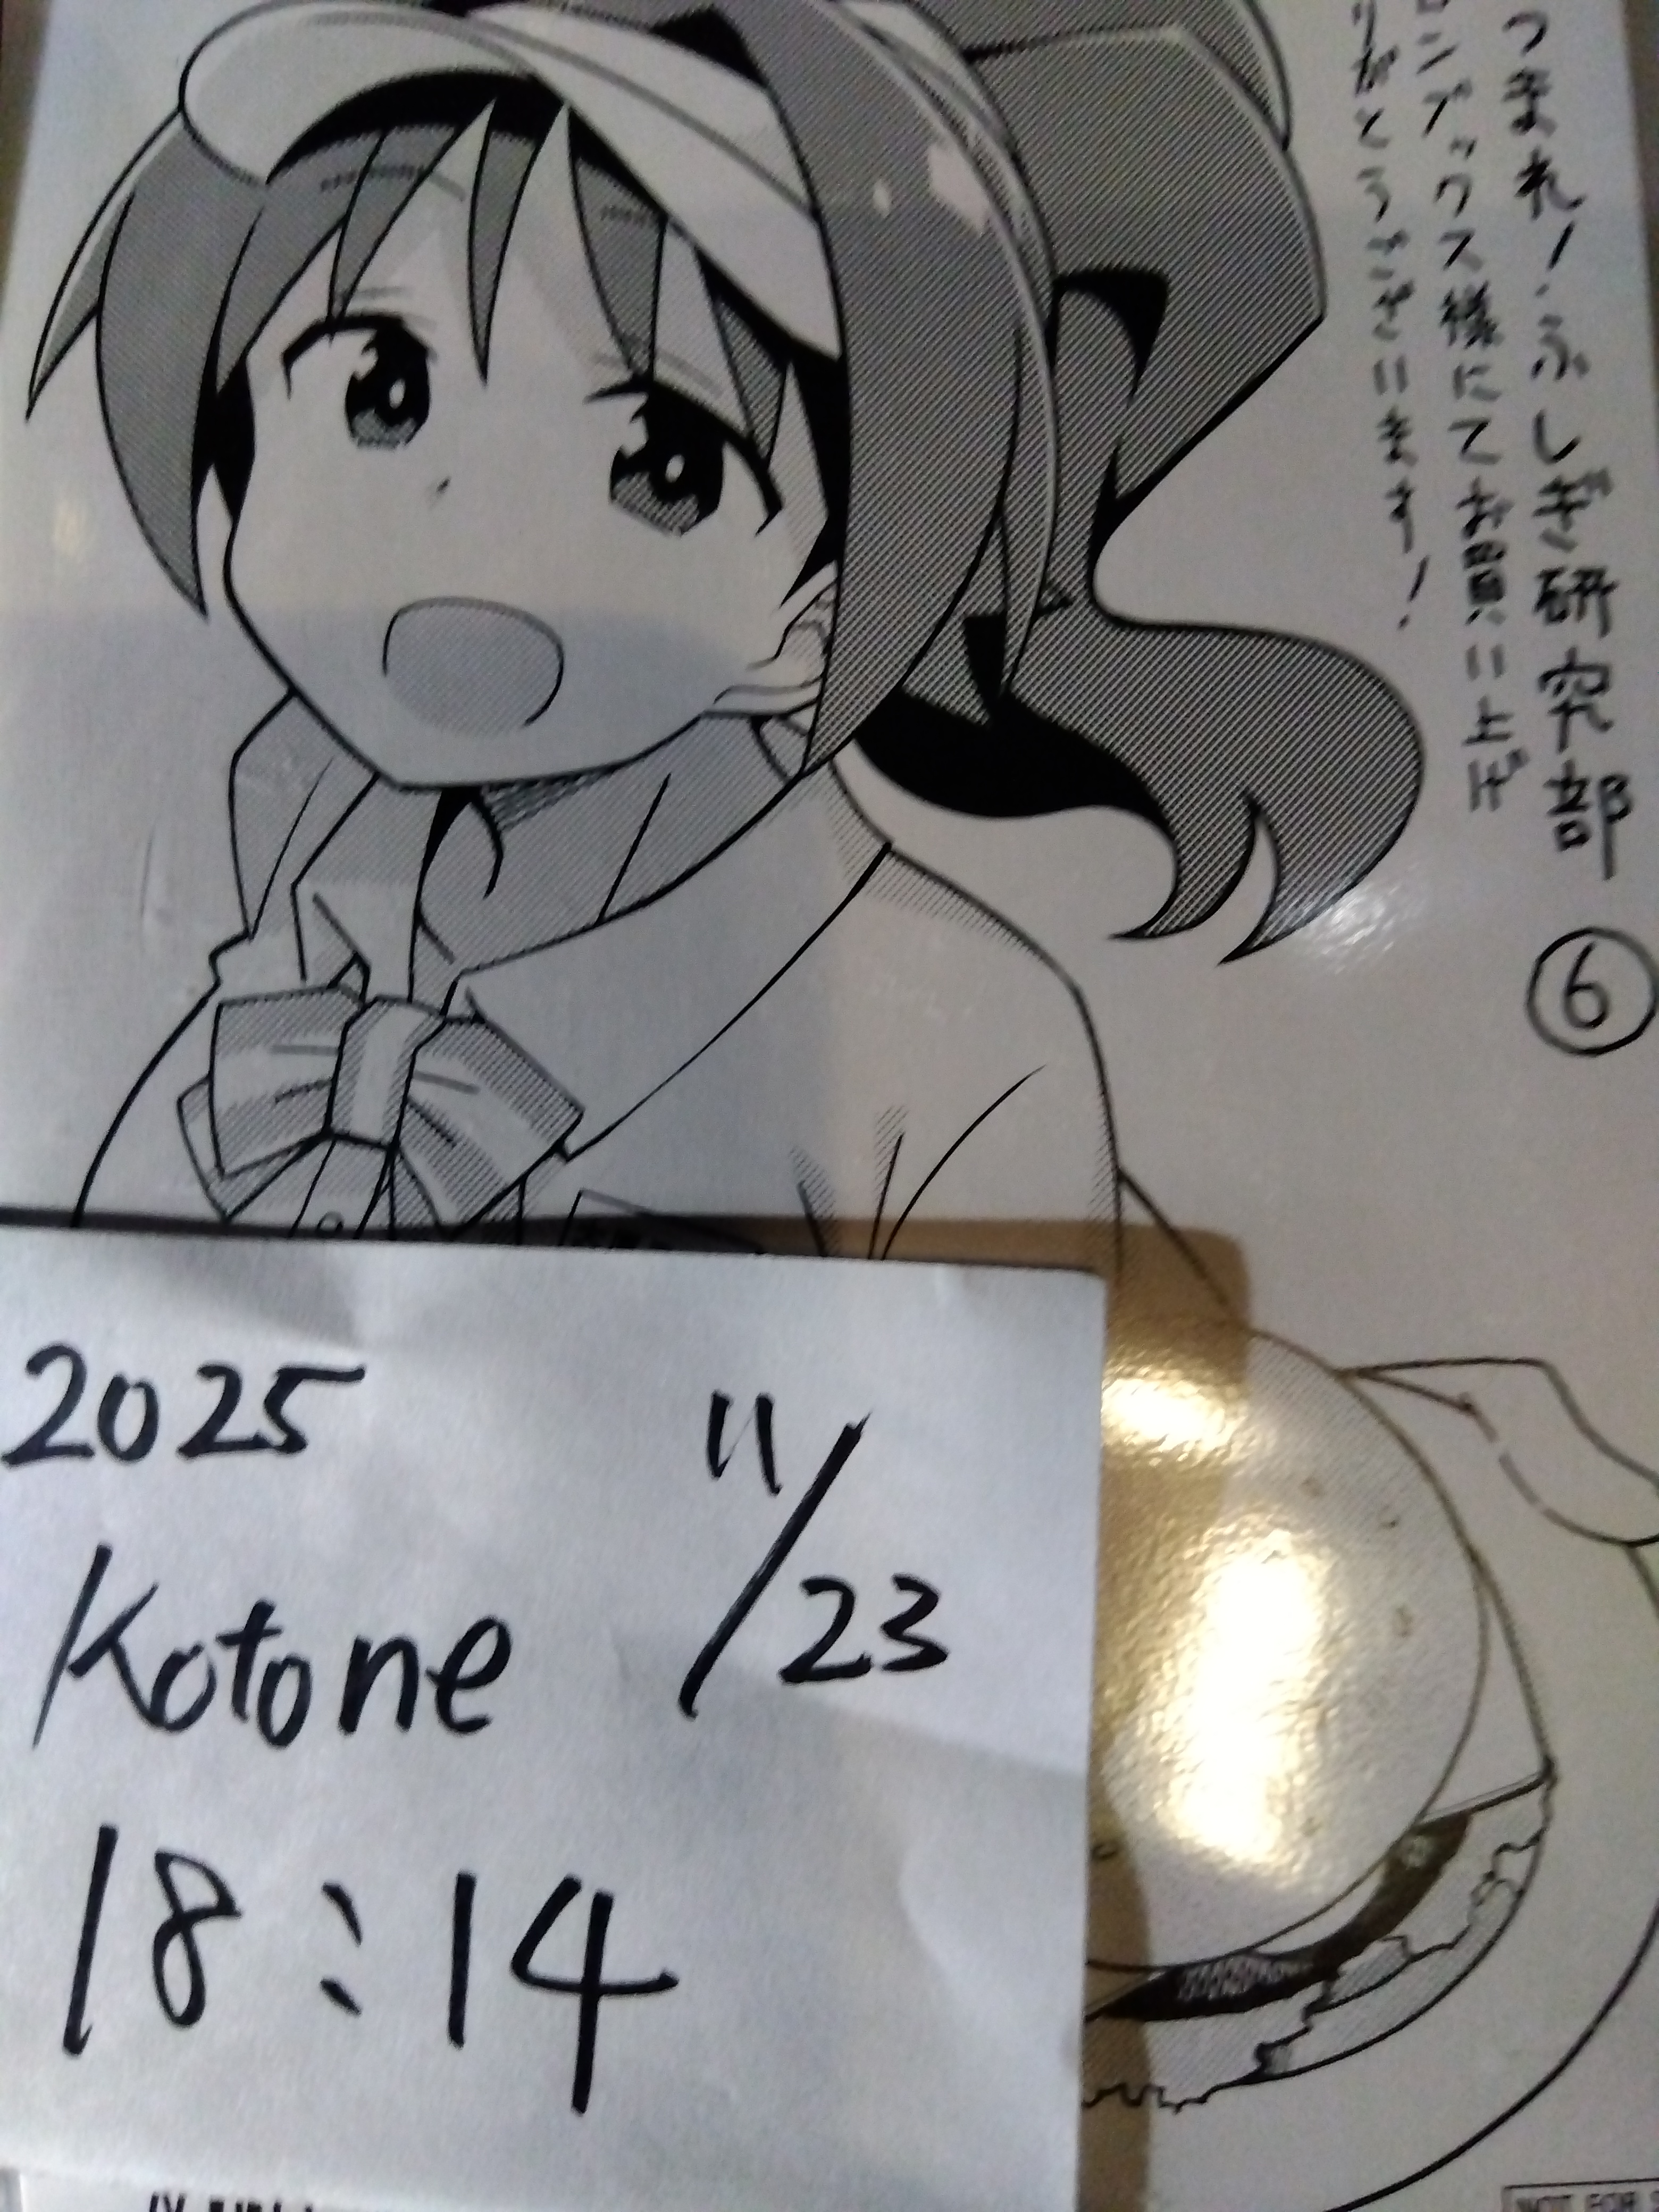 つまれ！ふしぎ研究部⑥
ロンブックス様にてお買い上げ
りがとうございます！
2025 11/23
Kotone
18:14